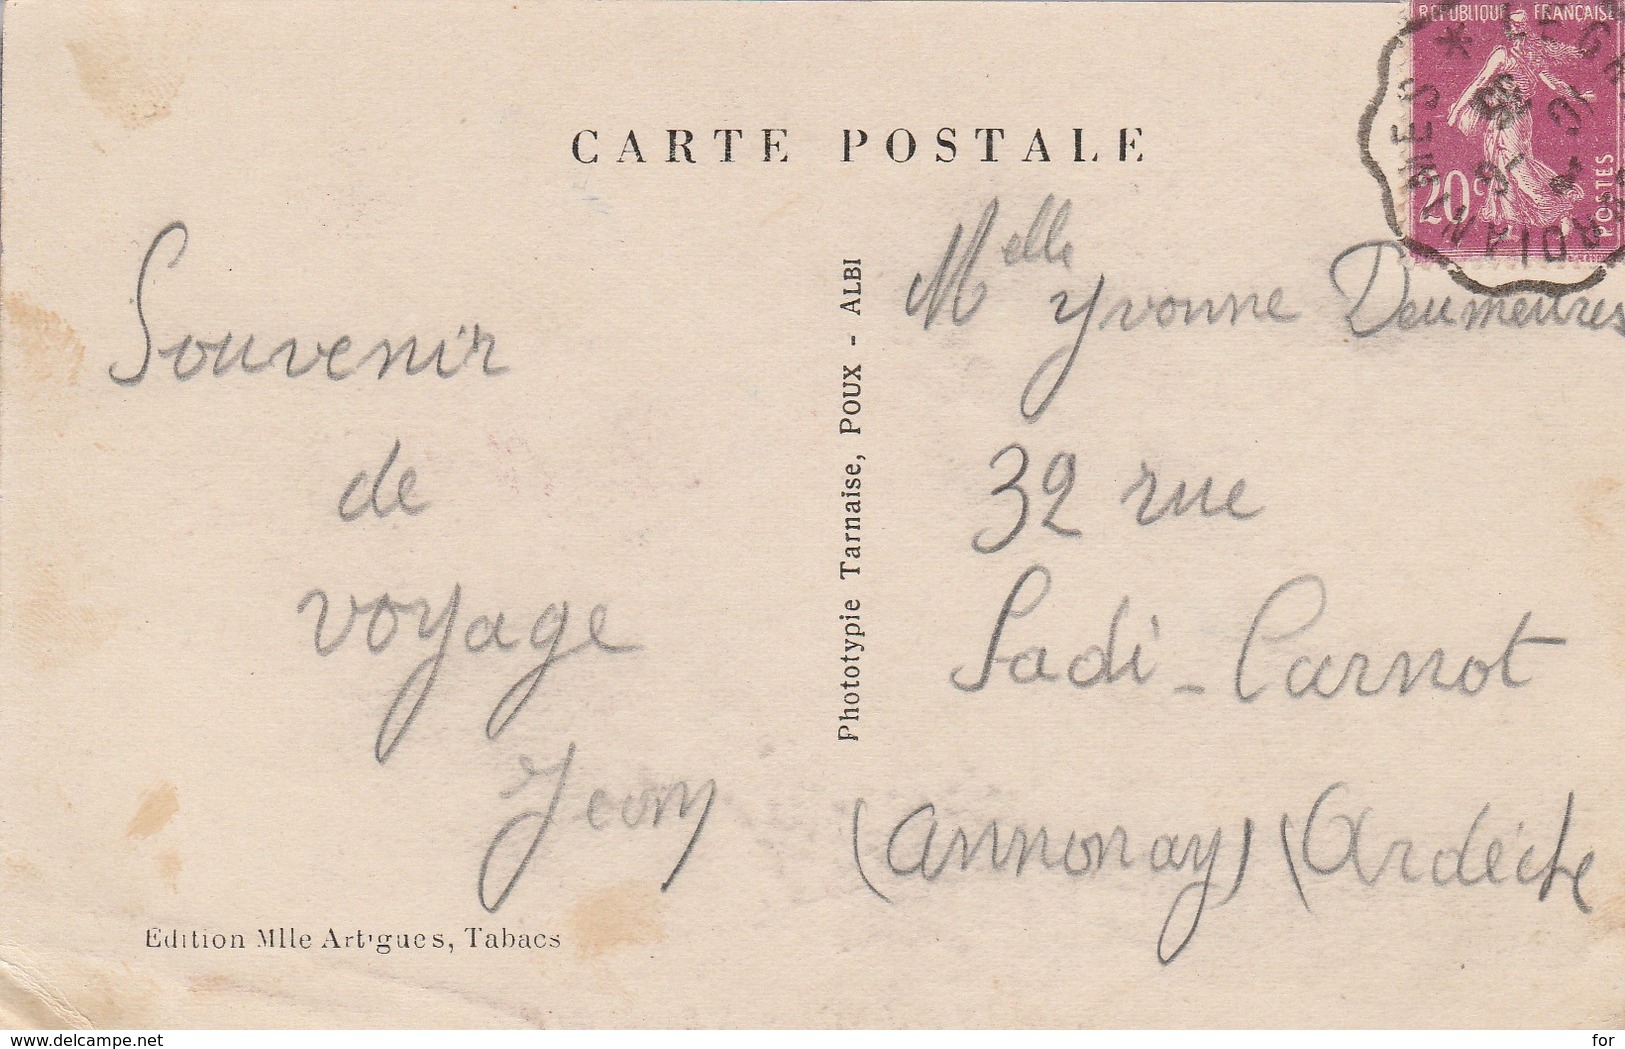 CARTE POSTALE
RÉPUBLIQUE FRANÇAISE
20c
POSTES
Souvenir
de
voyage
Jeany
Edition Mlle Artigues, Tabacs
Phototypie Tarnaise, POUX - ALBI
Melle Yvonne Doumeures
32 rue
Sadi-Carnot
(Annonay) (Ardèche
www.delcampe.net
for